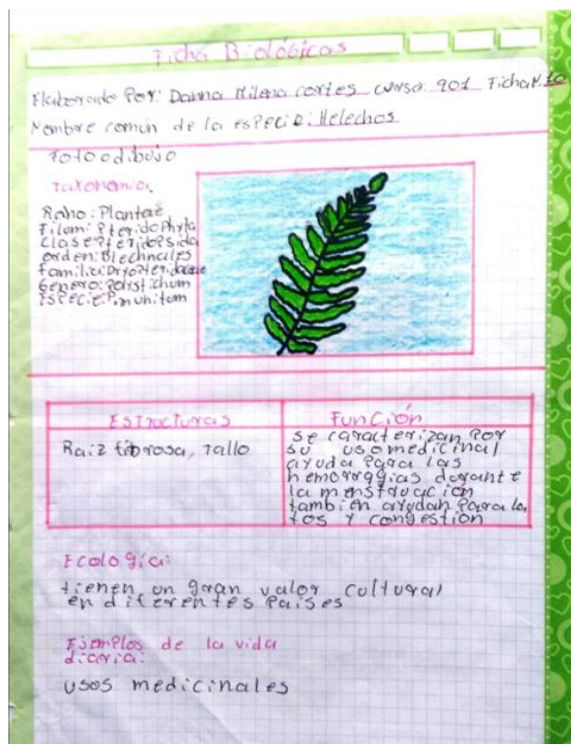 Ficha Biológicas
Elaborado Por: Danna Milena cortes curso: 901 Ficha N. 10
Nombre común de la especie: Helechos
Foto o dibujo
Taxonomía.
Reino: Plantae
Filum: Pteridophyta
Clase: Pteridopsida
orden: Blechnales
Familia: Dryopteridaceae
Genero: Polistichum
Especie: P. munitum
Estructuras
Raiz fibrosa, Tallo
Función
se caracterizan por
su uso medicinal
ayuda para las
hemorragias durante
la menstruación
también ayudan para la
tos y congestión
Ecología:
tienen un gran valor cultural
en diferentes paises
Ejemplos de la vida
diaria:
usos medicinales